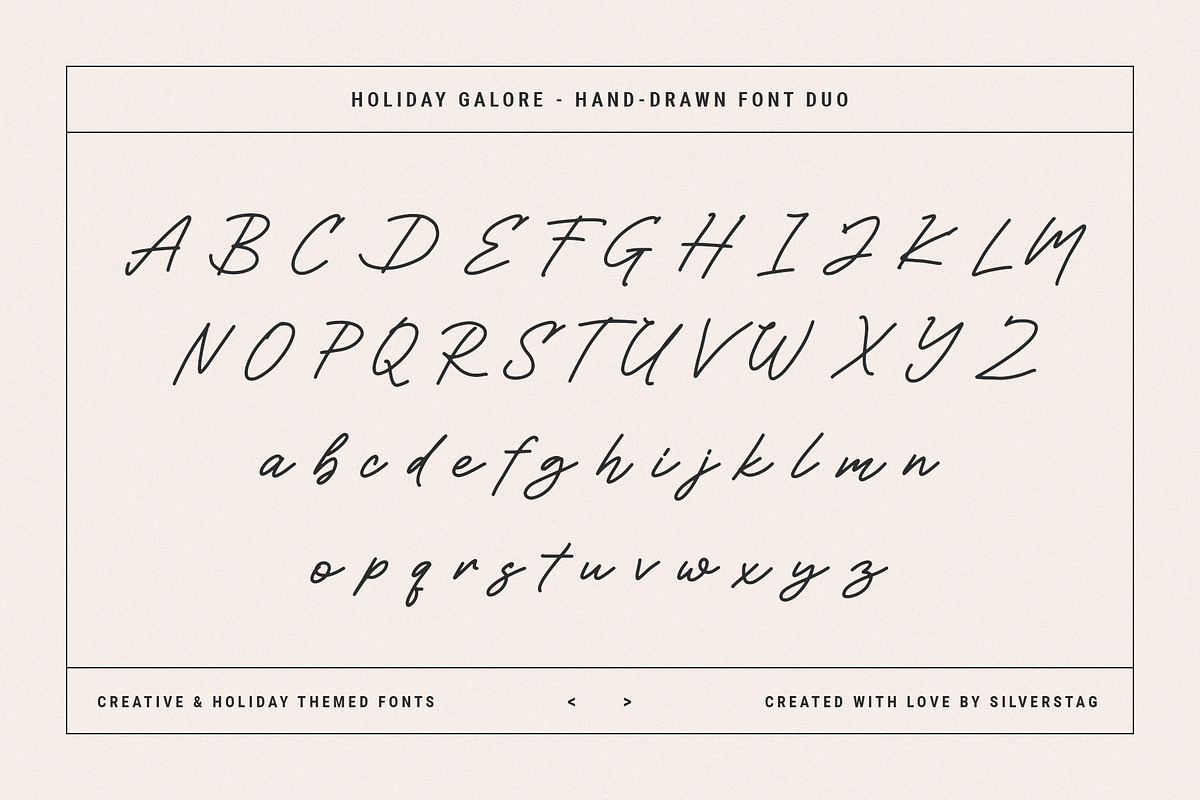 HOLIDAY GALORE - HAND-DRAWN FONT DUO
A B C D E F G H I J K L M
N O P Q R S T U V W X Y Z
a b c d e f g h i j k l m n
o p q r s t u v w x y z
CREATIVE & HOLIDAY THEMED FONTS < > CREATED WITH LOVE BY SILVERSTAG